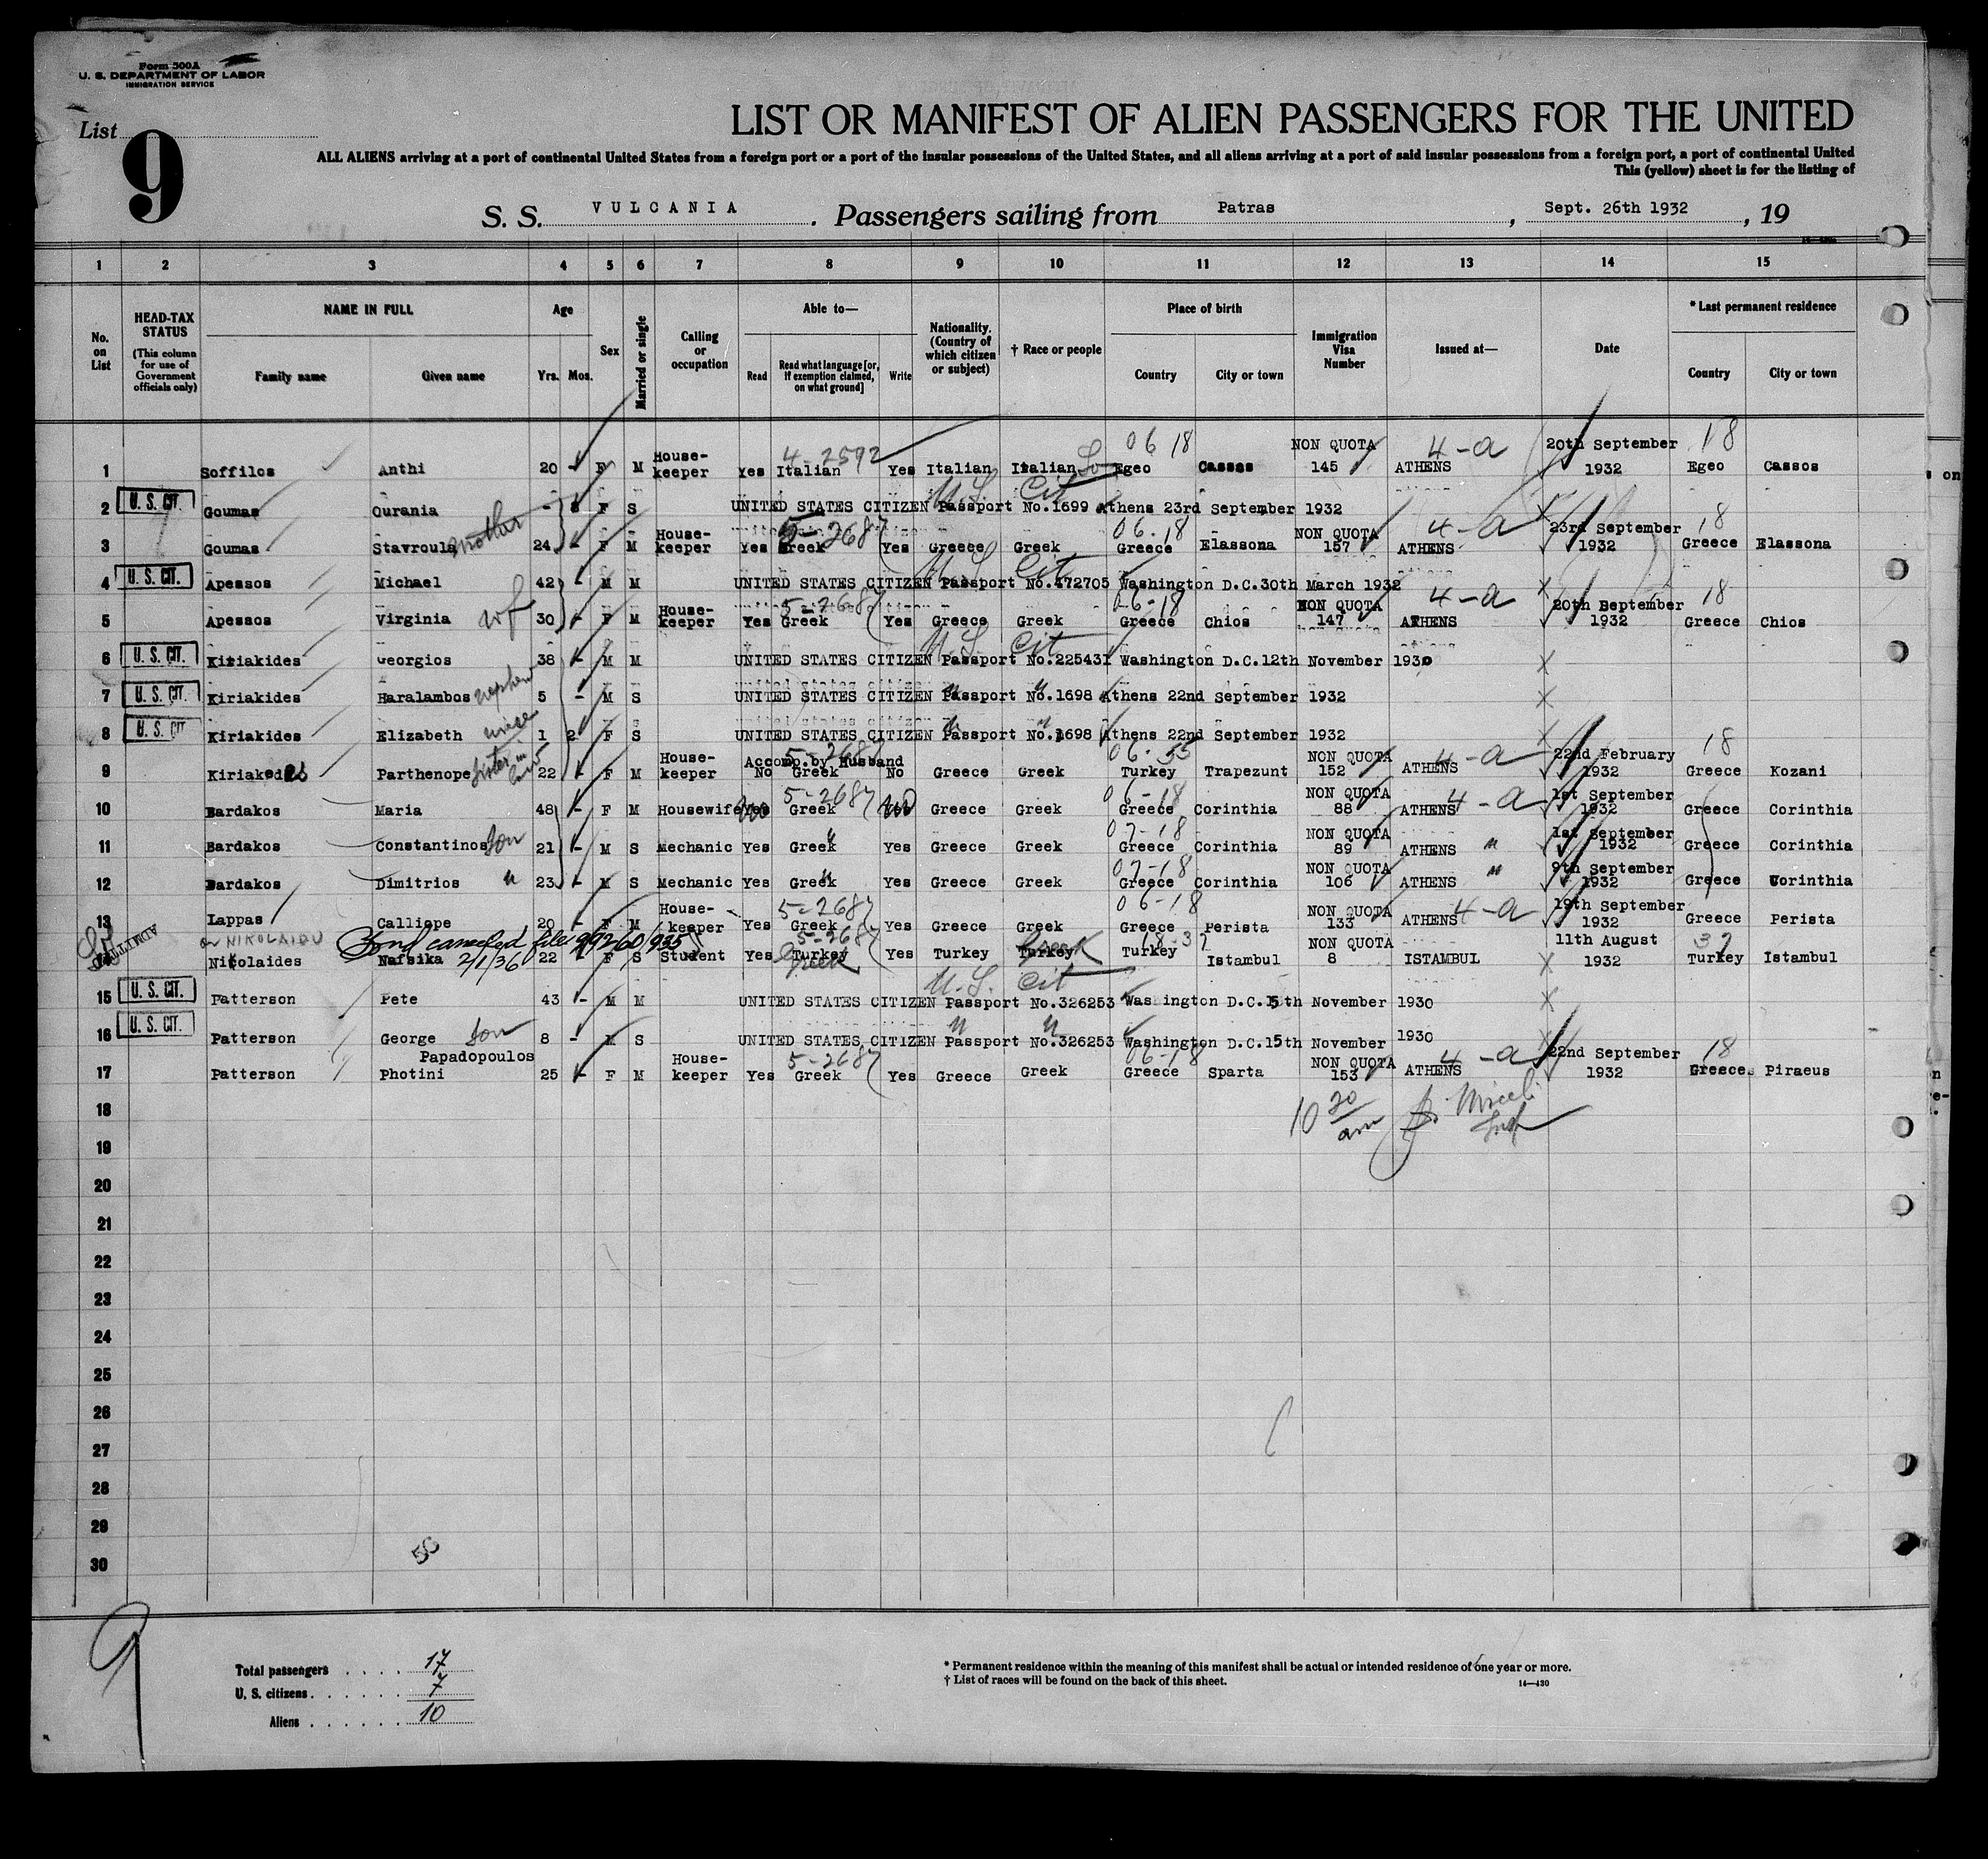 Form 500A
U. S. DEPARTMENT OF LABOR
IMMIGRATION SERVICE
List
9
LIST OR MANIFEST OF ALIEN PASSENGERS FOR THE UNITED
ALL ALIENS arriving at a port of continental United States from a foreign port or a port of the insular possessions of the United States, and all aliens arriving at a port of said insular possessions from a foreign port, a port of continental United
This (yellow) sheet is for the listing of
S. S. VULCANIA . Passengers sailing from Patras , Sept. 26th 1932 , 19
1 2 3 4 5 6 7 8 9 10 11 12 13 14 15
No. on List
HEAD-TAX STATUS (This column for use of Government officials only)
NAME IN FULL Family name Given name
Age Yrs. Mos.
Sex
Married or single
Calling or occupation
Able to— Read Read what language [or, if exemption claimed, on what ground] Write
Nationality. (Country of which citizen or subject)
† Race or people
Place of birth Country City or town
Immigration Visa Number
Issued at—
Date
* Last permanent residence Country City or town
4-2592 06 18 NON QUOTA 4-a 20th September 18
1 Soffilos Anthi 20 - F M House-keeper Yes Italian Yes Italian Italian So Egeo Cassos 145 ATHENS 1932 Egeo Cassos
U. S. Cit
2 U. S. CIT. Goumas Ourania - 8 F S UNITED STATES CITIZEN Passport No.1699 Athens 23rd September 1932
5-2687 06-18 NON QUOTA 4-a 23rd September 18
3 Goumas Stavroula mother 24 - F M House-keeper Yes Greek Yes Greece Greek Greece Elassona 157 ATHENS 1932 Greece Elassona
U. S. Cit
4 U. S. CIT. Apessos Michael 42 - M M UNITED STATES CITIZEN Passport No.472705 Washington D.C.30th March 1932
5-2687 06-18 NON QUOTA 4-a 20th September 18
5 Apessos Virginia wf 30 - F M House-keeper Yes Greek Yes Greece Greek Greece Chios 147 ATHENS 1932 Greece Chios
U. S. Cit
6 U. S. CIT. Kiriakides Georgios 38 - M M UNITED STATES CITIZEN Passport No.225431 Washington D.C.12th November 1930
7 U. S. CIT. Kiriakides Haralambos nephew 5 - M S UNITED STATES CITIZEN Passport No.1698 Athens 22nd September 1932
8 U. S. CIT Kiriakides Elizabeth niece 1 2 F S UNITED STATES CITIZEN Passport No.1698 Athens 22nd September 1932
5-2687 Accomp.by Husband 06-55 NON QUOTA 4-a 22nd February 18
9 Kiriakides Parthenope Sister in law 22 - F M House-keeper No Greek No Greece Greek Turkey Trapezunt 152 ATHENS 1932 Greece Kozani
5-2687 06-18 NON QUOTA 4-a 1st September
10 Bardakos Maria 48 - F M Housewife Yes No Greek Yes No Greece Greek Greece Corinthia 88 ATHENS 1932 Greece Corinthia
07-18 NON QUOTA 1st September
11 Bardakos Constantinos Son 21 - M S Mechanic Yes Greek Yes Greece Greek Greece Corinthia 89 ATHENS " 1932 Greece Corinthia
07-18 NON QUOTA 9th September
12 Bardakos Dimitrios " 23 - M S Mechanic Yes Greek Yes Greece Greek Greece Corinthia 106 ATHENS " 1932 Greece Corinthia
5-2687 06-18 NON QUOTA 4-a 19th September
13 Lappas Calliope 20 - F M House-keeper Yes Greek Yes Greece Greek Greece Perista 133 ATHENS 1932 Greece Perista
ADMITTED or NIKOLAIDU Bond canceled file 99260/935 5-2687 Greek 18-37 NON QUOTA 11th August 37
Nikolaides Nafsika 2/1/36 22 - F S Student Yes Turkey Greek Yes Turkey Turkey Turkey Istambul 8 ISTAMBUL 1932 Turkey Istambul
U. S. Cit
15 U. S. CIT. Patterson Pete 43 - M M UNITED STATES CITIZEN Passport No.326253 Was ington D.C.15th November 1930
16 U. S. CIT. Patterson George Son 8 - M S UNITED STATES CITIZEN Passport No.326253 Washington D.C.15th November 1930
Papadopoulos 5-2687 06-18 NON QUOTA 4-a 22nd September 18
17 Patterson Photini 25 - F M House-keeper Yes Greek Yes Greece Greek Greece Sparta 153 ATHENS 1932 Greece Piraeus
18
10 30 am
19
20
21
22
23
24
25
26
27
28
29
30
50
9
Total passengers . . . . 17
U. S. citizens . . . . . . 7
Aliens . . . . . . 10
* Permanent residence within the meaning of this manifest shall be actual or intended residence of one year or more.
† List of races will be found on the back of this sheet.
14—430